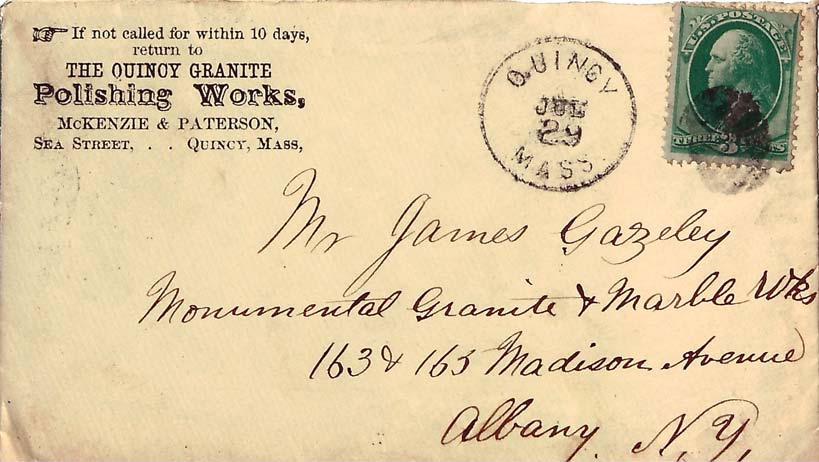 If not called for within 10 days,
return to
THE QUINCY GRANITE
Polishing Works,
McKENZIE & PATERSON,
SEA STREET, . . QUINCY, MASS,
QUINCY
JUL
29
MASS.
U.S. POSTAGE
THREE 3 CENTS
Mr James Gazeley
Monumental Granite & Marble Wks
163 & 165 Madison Avenue
Albany N.Y.